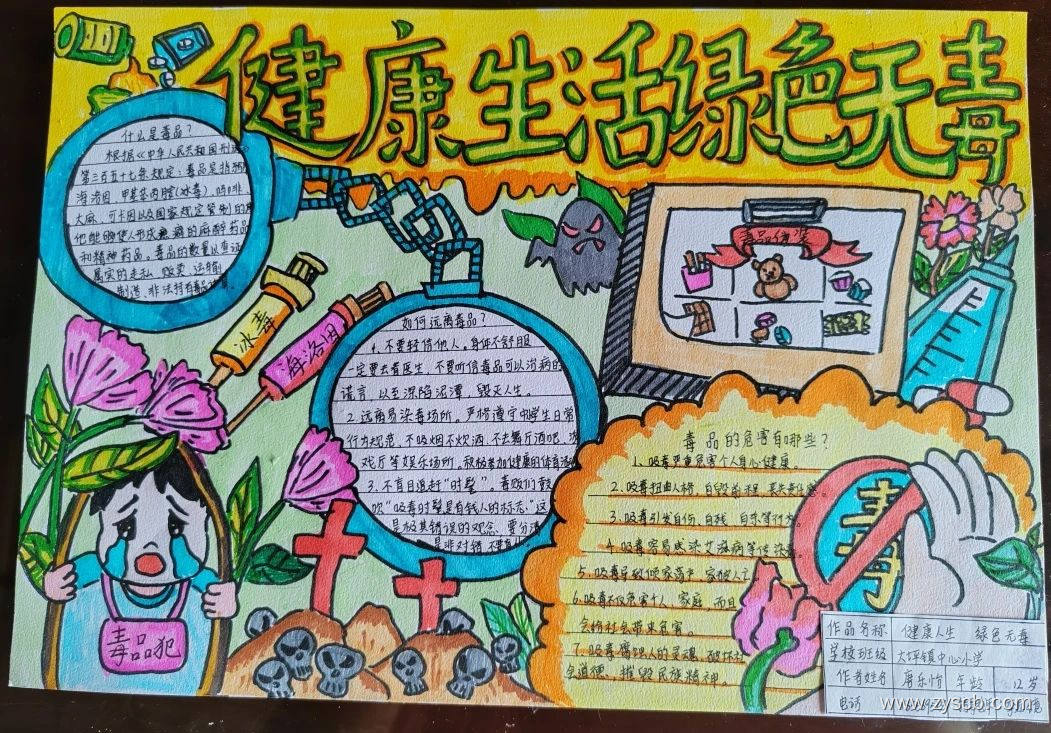 健康生活绿色无毒
什么是毒品？
根据《中华人民共和国刑法》
第三百五十七条规定：毒品是指鸦片
海洛因、甲基苯丙胺(冰毒)、吗啡
大麻、可卡因以及国家规定管制的
他能够使人形成瘾癖的麻醉药品
和精神药品。毒品的数量以查证
属实的走私、贩卖、运输
制造、非法持有毒品
冰毒
海洛因
如何远离毒品？
1、不要轻信他人。身体不舒服
一定要去看医生，不要听信毒品可以治病的
谎言，以至深陷泥潭，毁灭人生。
2.远离易染毒场所。严格遵守中学生日常
行为规范，不吸烟不炊酒，不去舞厅酒吧、游
戏厅等娱乐场所。积极参加健康的体育活
3.不盲目追赶“时髦”。毒贩们鼓
吹“吸毒时髦是有钱人的标志”这
是极其错误的观念，要分清
是非对错，不要
毒品伪装
毒品的危害有哪些？
1、吸毒严重危害个人身心健康。
2、吸毒扭曲人格，自毁前程，丧失责任
3、吸毒引发自伤、自残、自杀等行为
4、吸毒容易感染艾滋病等传染
5、吸毒导致倾家荡产、家破人亡
6.吸毒不仅危害个人、家庭，而且
会给社会带来危害。
7、吸毒腐蚀人的灵魂，破坏社
会道德，摧毁民族精神。
毒
毒品犯
作品名称 健康人生 绿色无毒
学校班级 大坪镇中心小学
作者姓名 唐乐怡 年龄 12岁
电话
www.zyscb.com